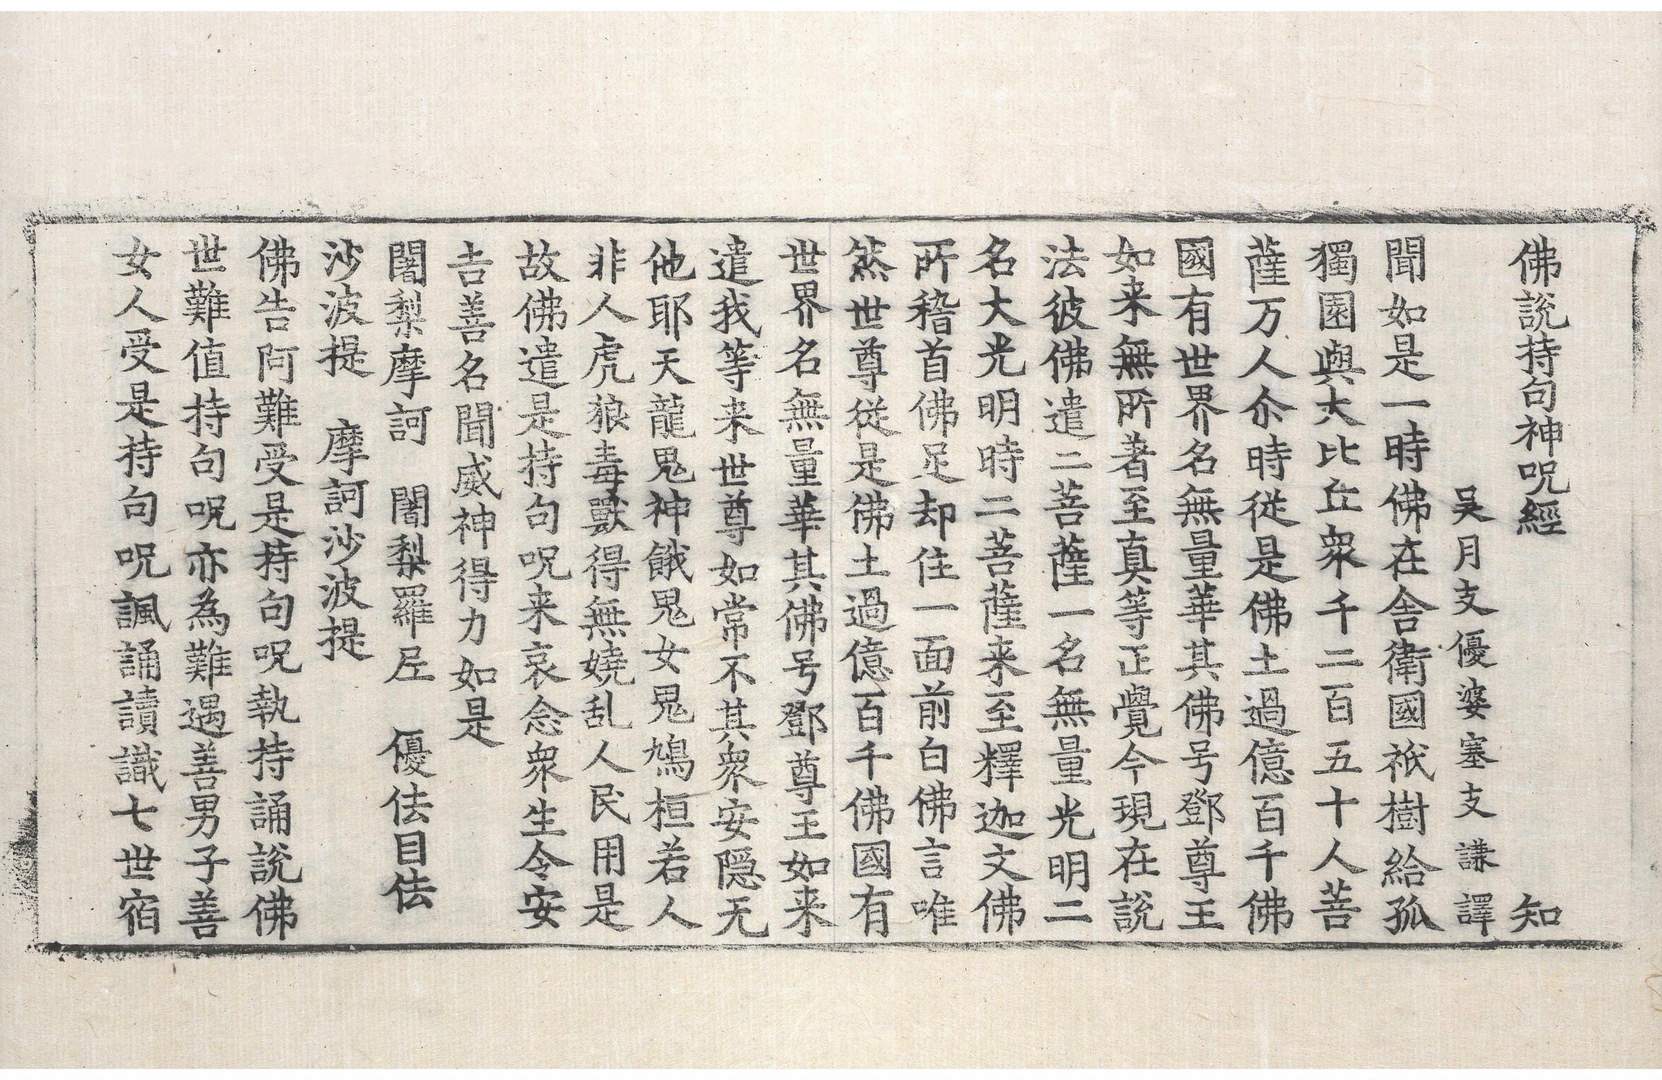 佛說持句神呪經 知
吴月支優婆塞支謙譯
聞如是一時佛在舎衛國祇樹給孤
獨園與大比丘衆千二百五十人菩
薩万人尒時從是佛土過億百千佛
國有世界名無量華其佛号鄧尊王
如来無所著至真等正覺今現在說
法彼佛遣二菩薩一名無量光明二
名大光明時二菩薩来至釋迦文佛
所稽首佛足却住一面前白佛言唯
然世尊從是佛土過億百千佛國有
世界名無量華其佛号鄧尊王如来
遣我等来世尊如常不其衆安隠无
他耶天龍鬼神餓鬼女鬼鳩桓若人
非人虎狼毒獸得無嬈乱人民用是
故佛遣是持句呪来哀念衆生令安
吉善名聞威神得力如是
闍梨摩訶 闍梨羅层 優佉目佉
沙波提 摩訶沙波提
佛告阿難受是持句呪執持誦說佛
世難值持句呪亦為難遇善男子善
女人受是持句呪諷誦讀識七世宿